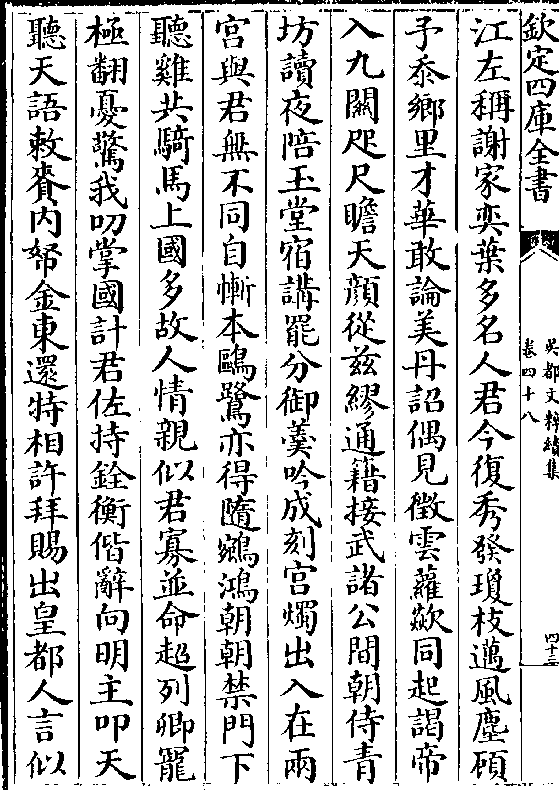 欽定四庫全書
吳都文粹續集
卷四十八
四十三
江左稱謝家奕葉多名人君今復秀發瓊枝邁風塵顧
予忝鄉里才華敢論美丹詔偶見徵雲蘿歘同起謁帝
入九關咫尺瞻天顔從兹繆通籍接武諸公間朝侍青
坊讀夜陪玉堂宿講罷分御羮吟成刻宫燭出入在兩
宫與君無不同自慚本鷗鷺亦得隨鵷鴻朝朝禁門下
聽雞共騎馬上國多故人情親似君寡並命超列卿寵
極翻憂驚我叨掌國計君佐持銓衡偕辭向明主叩天
聽天語敕賚内帑金東還特相許拜賜出皇都人言似